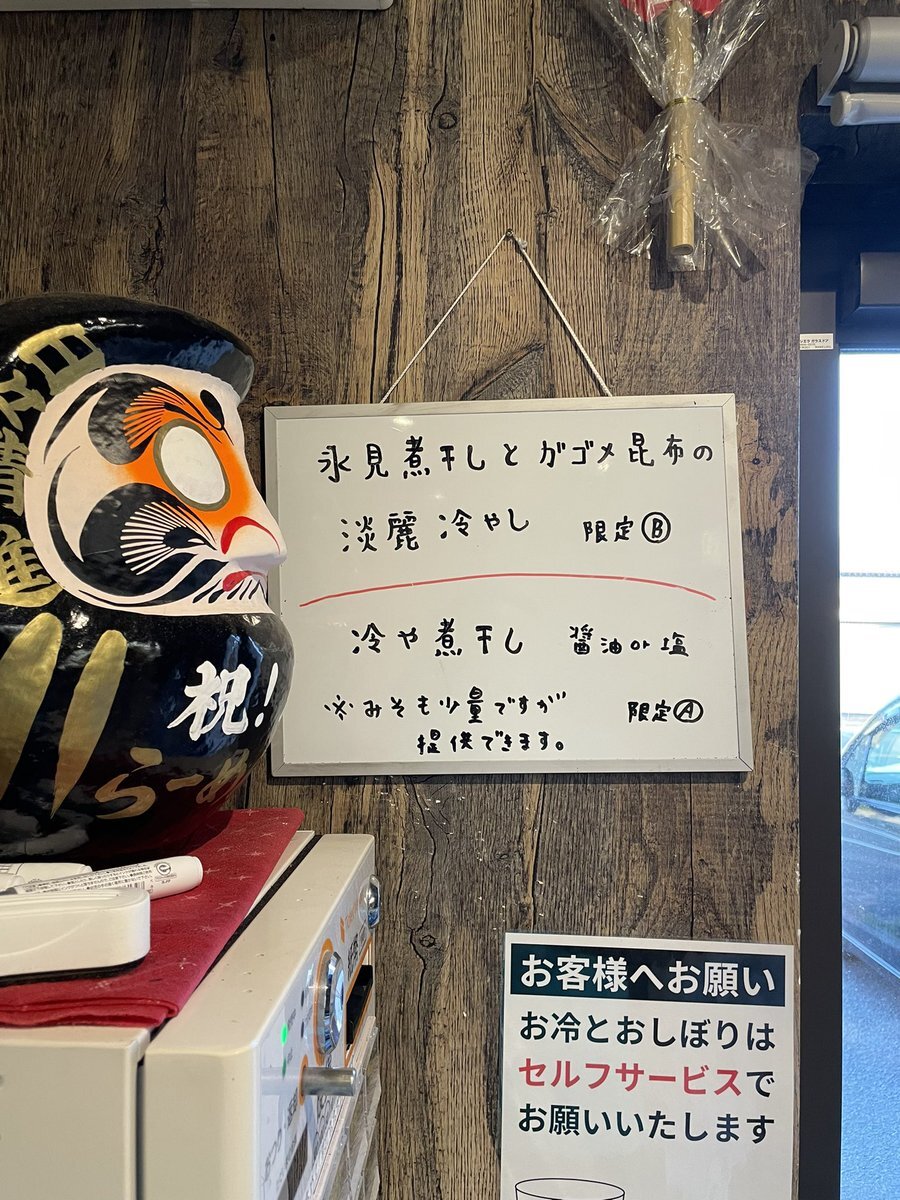 氷見煮干しとガゴメ昆布の
淡麗 冷やし 限定Ⓑ
冷や煮干し 醤油or塩
※みそも少量ですが 限定Ⓐ
提供できます。
祝!
らーめ
お客様へお願い
お冷とおしぼりは
セルフサービスで
お願いいたします